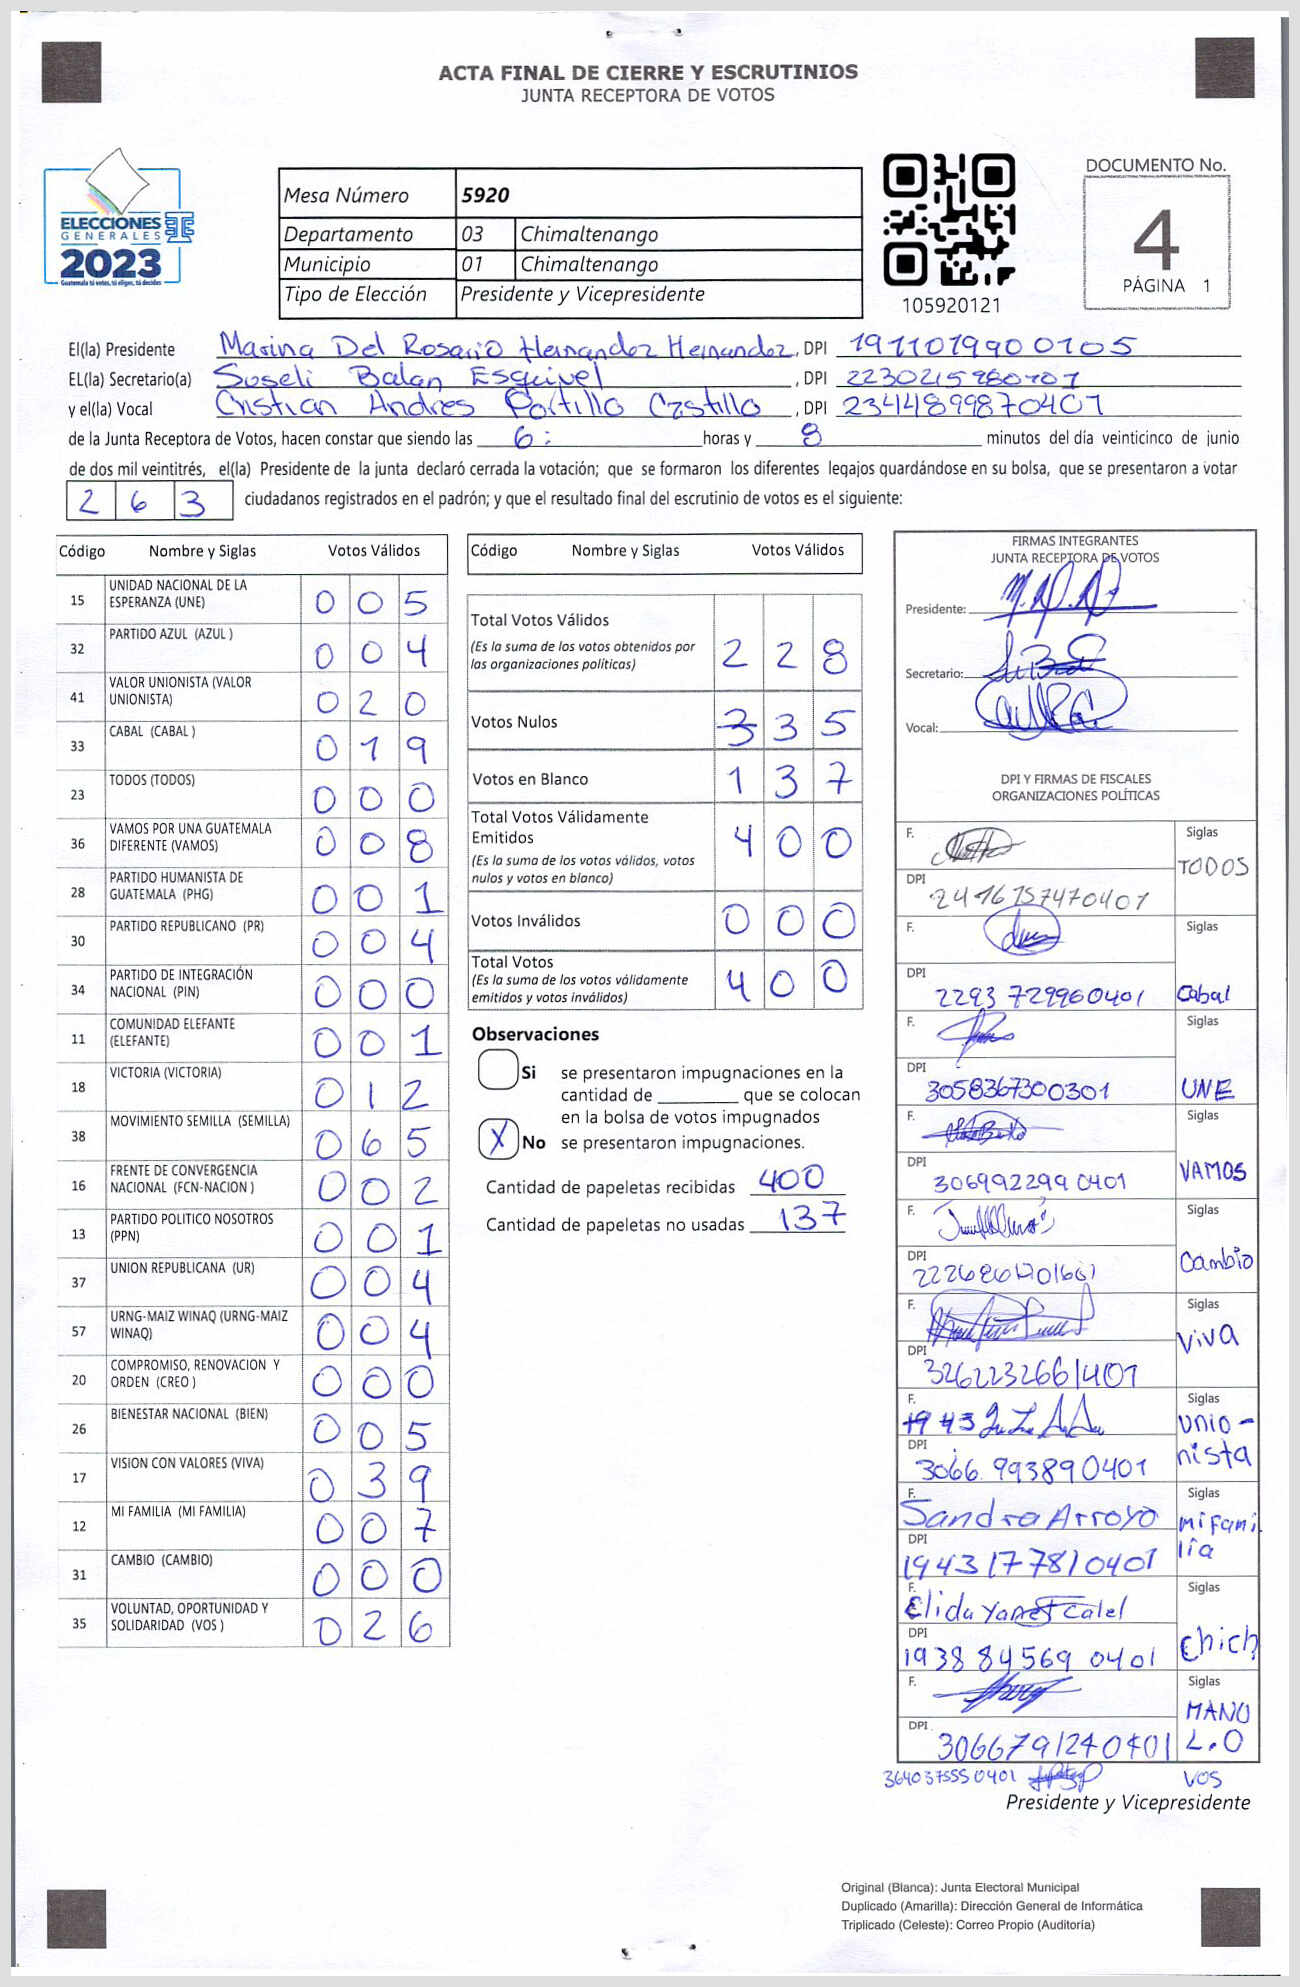 ACTA FINAL DE CIERRE Y ESCRUTINIOS
JUNTA RECEPTORA DE VOTOS
ELECCIONES
GENERALES
2023
Guatemala tú votes, tú eliges, tú decides
Mesa Número 5920
Departamento 03 Chimaltenango
Municipio 01 Chimaltenango
Tipo de Elección Presidente y Vicepresidente
105920121
DOCUMENTO No.
4
PÁGINA 1
El(la) Presidente Marina Del Rosario Hernandez Hernandez, DPI 1911019900105
EL(la) Secretario(a) Suseli Balan Esquivel, DPI
y el(la) Vocal Cristian Andres Portillo Castillo, DPI 2344899870401
de la Junta Receptora de Votos, hacen constar que siendo las 6: horas y 8 minutos del día veinticinco de junio
de dos mil veintitrés, el(la) Presidente de la junta declaró cerrada la votación; que se formaron los diferentes legajos quardándose en su bolsa, que se presentaron a votar
2 6 3 ciudadanos registrados en el padrón; y que el resultado final del escrutinio de votos es el siguiente:
Código Nombre y Siglas Votos Válidos
15 UNIDAD NACIONAL DE LA ESPERANZA (UNE) 0 0 5
32 PARTIDO AZUL (AZUL ) 0 0 4
41 VALOR UNIONISTA (VALOR UNIONISTA) 0 2 0
33 CABAL (CABAL ) 0 1 9
23 TODOS (TODOS) 0 0 0
36 VAMOS POR UNA GUATEMALA DIFERENTE (VAMOS) 0 0 8
28 PARTIDO HUMANISTA DE GUATEMALA (PHG) 0 0 1
30 PARTIDO REPUBLICANO (PR) 0 0 4
34 PARTIDO DE INTEGRACIÓN NACIONAL (PIN) 0 0 0
11 COMUNIDAD ELEFANTE (ELEFANTE) 0 0 1
18 VICTORIA (VICTORIA) 0 1 2
38 MOVIMIENTO SEMILLA (SEMILLA) 0 6 5
16 FRENTE DE CONVERGENCIA NACIONAL (FCN-NACION ) 0 0 2
13 PARTIDO POLITICO NOSOTROS (PPN) 0 0 1
37 UNION REPUBLICANA (UR) 0 0 4
57 URNG-MAIZ WINAQ (URNG-MAIZ WINAQ) 0 0 4
20 COMPROMISO, RENOVACION Y ORDEN (CREO ) 0 0 0
26 BIENESTAR NACIONAL (BIEN) 0 0 5
17 VISION CON VALORES (VIVA) 0 3 9
12 MI FAMILIA (MI FAMILIA) 0 0 7
31 CAMBIO (CAMBIO) 0 0 0
35 VOLUNTAD, OPORTUNIDAD Y SOLIDARIDAD (VOS ) 0 2 6
Código Nombre y Siglas Votos Válidos
Total Votos Válidos 2 2 8
(Es la suma de los votos obtenidos por
las organizaciones políticas)
Votos Nulos 3 3 5
Votos en Blanco 1 3 7
Total Votos Válidamente
Emitidos 4 0 0
(Es la suma de los votos válidos, votos
nulos y votos en blanco)
Votos Inválidos 0 0 0
Total Votos 4 0 0
(Es la suma de los votos válidamente
emitidos y votos inválidos)
Observaciones
Si se presentaron impugnaciones en la
cantidad de ________ que se colocan
en la bolsa de votos impugnados
X No se presentaron impugnaciones.
Cantidad de papeletas recibidas 400
Cantidad de papeletas no usadas 137
FIRMAS INTEGRANTES
JUNTA RECEPTORA DE VOTOS
Presidente:
Secretario:
Vocal:
DPI Y FIRMAS DE FISCALES
ORGANIZACIONES POLÍTICAS
F. Siglas
TODOS
DPI 2416757470401
F. Siglas
DPI 2293 729960401 Cabal
F. Siglas
DPI 3058367300301 UNE
F. Siglas
DPI 306992299 0401 VAMOS
F. Siglas
DPI Cambio
F. Siglas
Viva
DPI 3262232661401
F. Siglas
Unio-
nista
DPI 3066 993890401
F. Sandra Arroyo Siglas
mi fami
lia
DPI 1943177810401
F. Elida Yanet Calel Siglas
Chich
DPI 1938 84569 0401
F. Siglas
MANO
L.O
DPI 3066791240401
364037555 0401 VOS
Presidente y Vicepresidente
Original (Blanca): Junta Electoral Municipal
Duplicado (Amarilla): Dirección General de Informática
Triplicado (Celeste): Correo Propio (Auditoría)